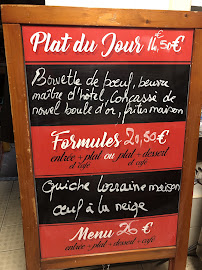 Plat du Jour 14,50€
Bavette de bœuf, beurre
maître d'hôtel, Concassé de
nowel boule d'or, frites maison
Formules 20,50€
entrée + plat ou plat + dessert
et café et café
Quiche lorraine maison
œuf à la neige
Menu 26 €
entrée + plat + dessert + café